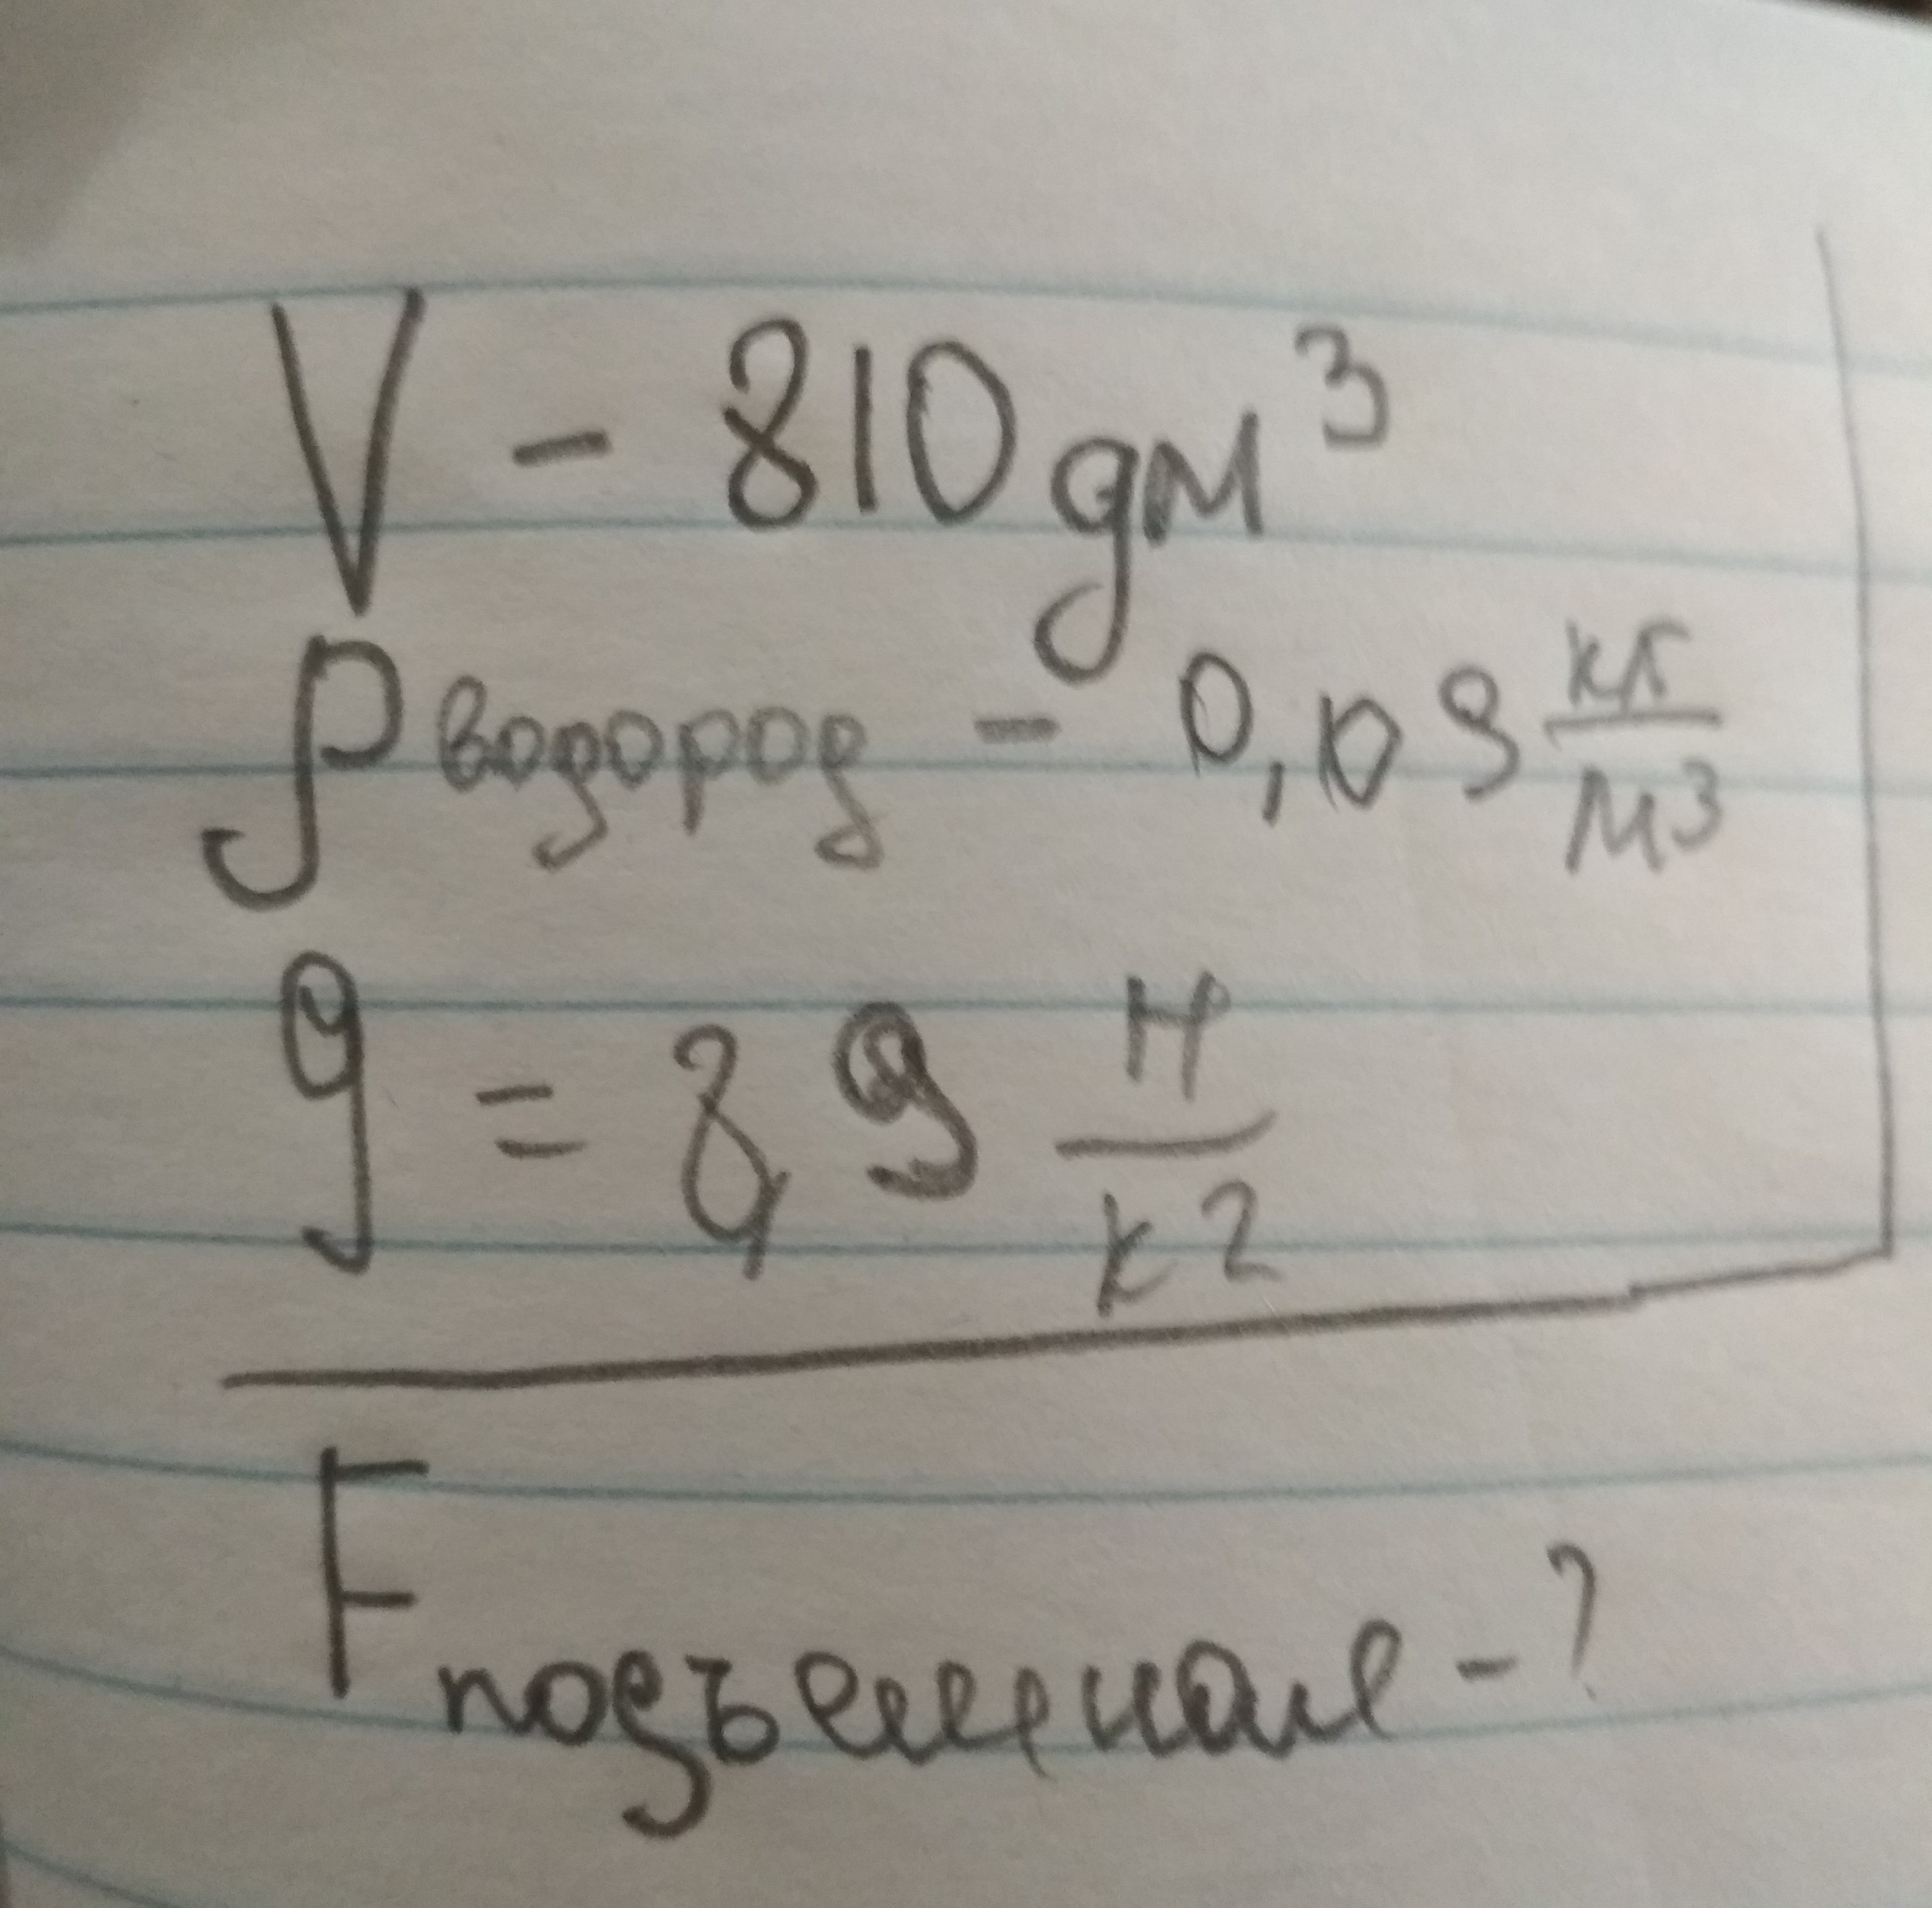 V - 810 дм³
ρ водород - 0,09 кг/м3
g = 8,9 Н/кг
F подъемная - ?